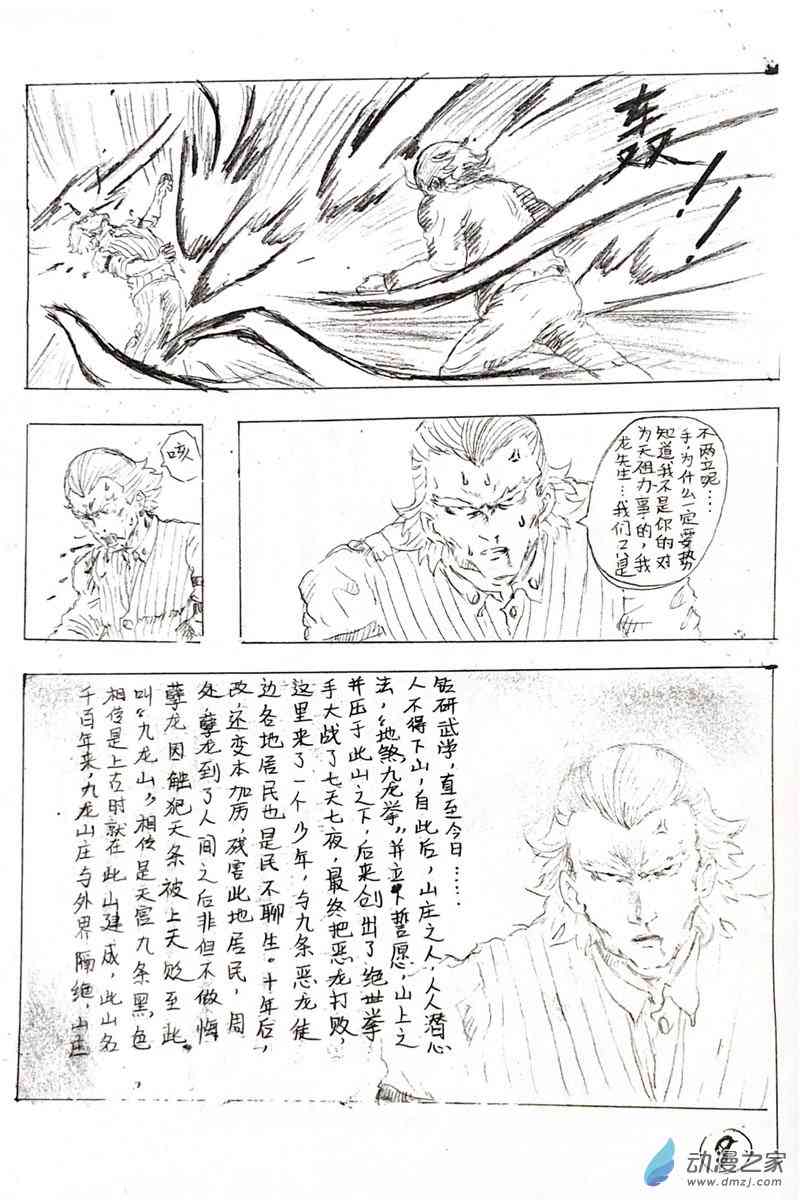 轰!!
龙先生…我们只是
为天祖办事的,我
知道我不是你的对
手,为什么一定要势
不两立呢……
咳
千百年来,九龙山庄与外界隔绝,山庄
相传是上古时就在此山建成,此山名
叫“九龙山”,相传是天宫九条黑色
孽龙因触犯天条被上天败至此
处,孽龙到了人间之后非但不做悔
改,还变本加厉,残害此地居民,周
边各地居民也是民不聊生。十年后,
这里来了一个少年,与九条恶龙徒
手大战了七天七夜,最终把恶龙打败,
并压于此山之下,后来创出了绝世拳
法,“地煞九龙拳”,并立下誓愿,山上之
人不得下山,自此后,山庄之人,人人潜心
钻研武学,直至今日……
动漫之家
www.dmzj.com